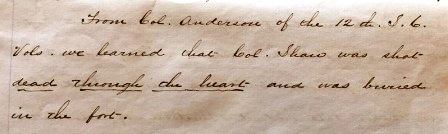 From Col. Anderson of the 12th. S. C.
Vols. we learned that Col. Shaw was shot
dead through the heart and was buried
in the fort.